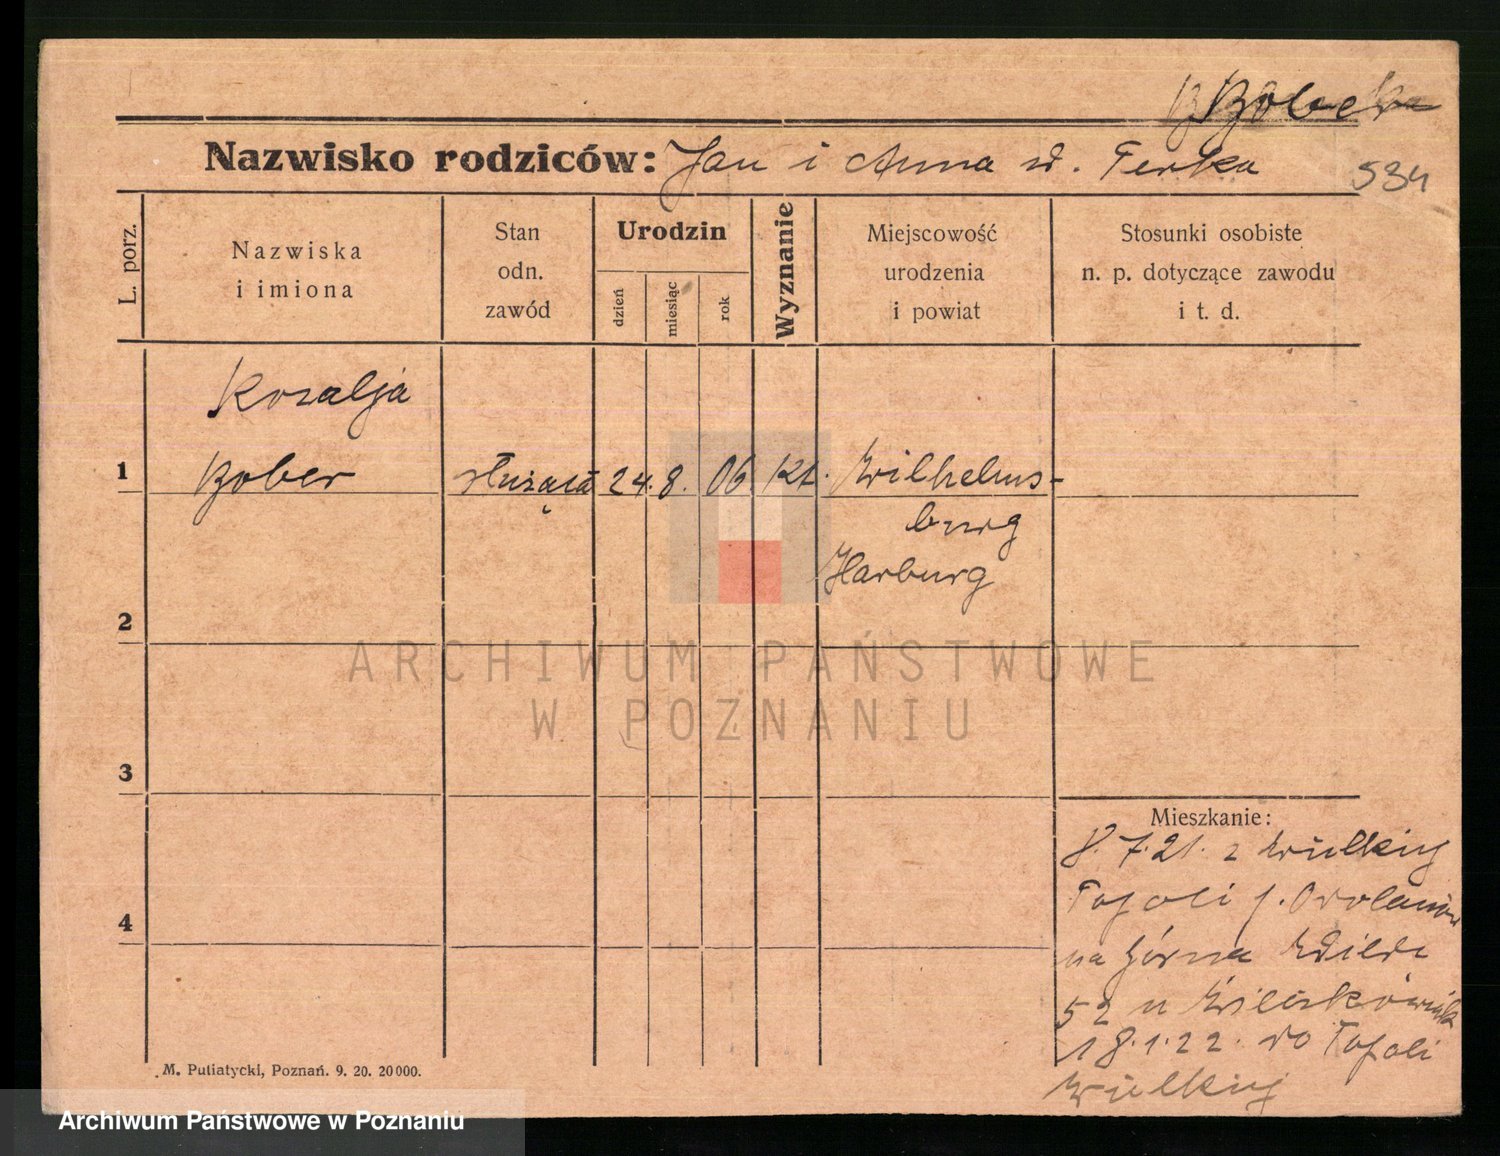 Bober
Nazwisko rodziców: Jan i Anna d. Ferka
534
L. porz.
Nazwiska
i imiona
Stan
odn.
zawód
Urodzin
dzień
miesiąc
rok
Wyznanie
Miejscowość
urodzenia
i powiat
Stosunki osobiste
n. p. dotyczące zawodu
i t. d.
Rozalja
1 Bober służąca 24. 8. 06 kt. Wilhelms-
burg
Harburg
2
3
4
Mieszkanie:
8.7.21. z Wielkiej
Topoli p. Odolanów
na Górna Wilda
52 u
18.1.22. do Topoli
Wielkiej
M. Putiatycki, Poznań. 9. 20. 20000.
ARCHIWUM PAŃSTWOWE
W POZNANIU
Archiwum Państwowe w Poznaniu